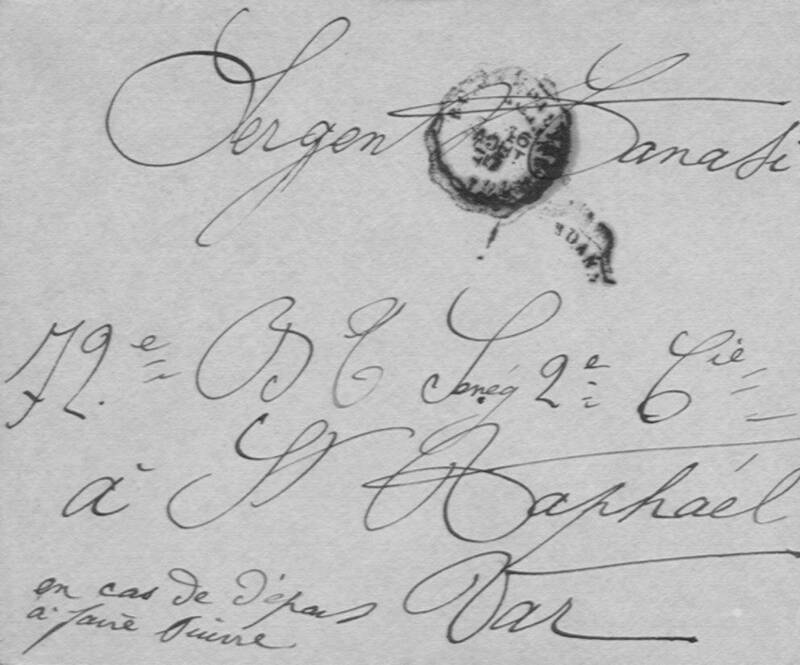 Sergent Sanasi
72e Bt Sénég 2e Cie
à St Raphaël
Var
en cas de dépars
à faire suivre